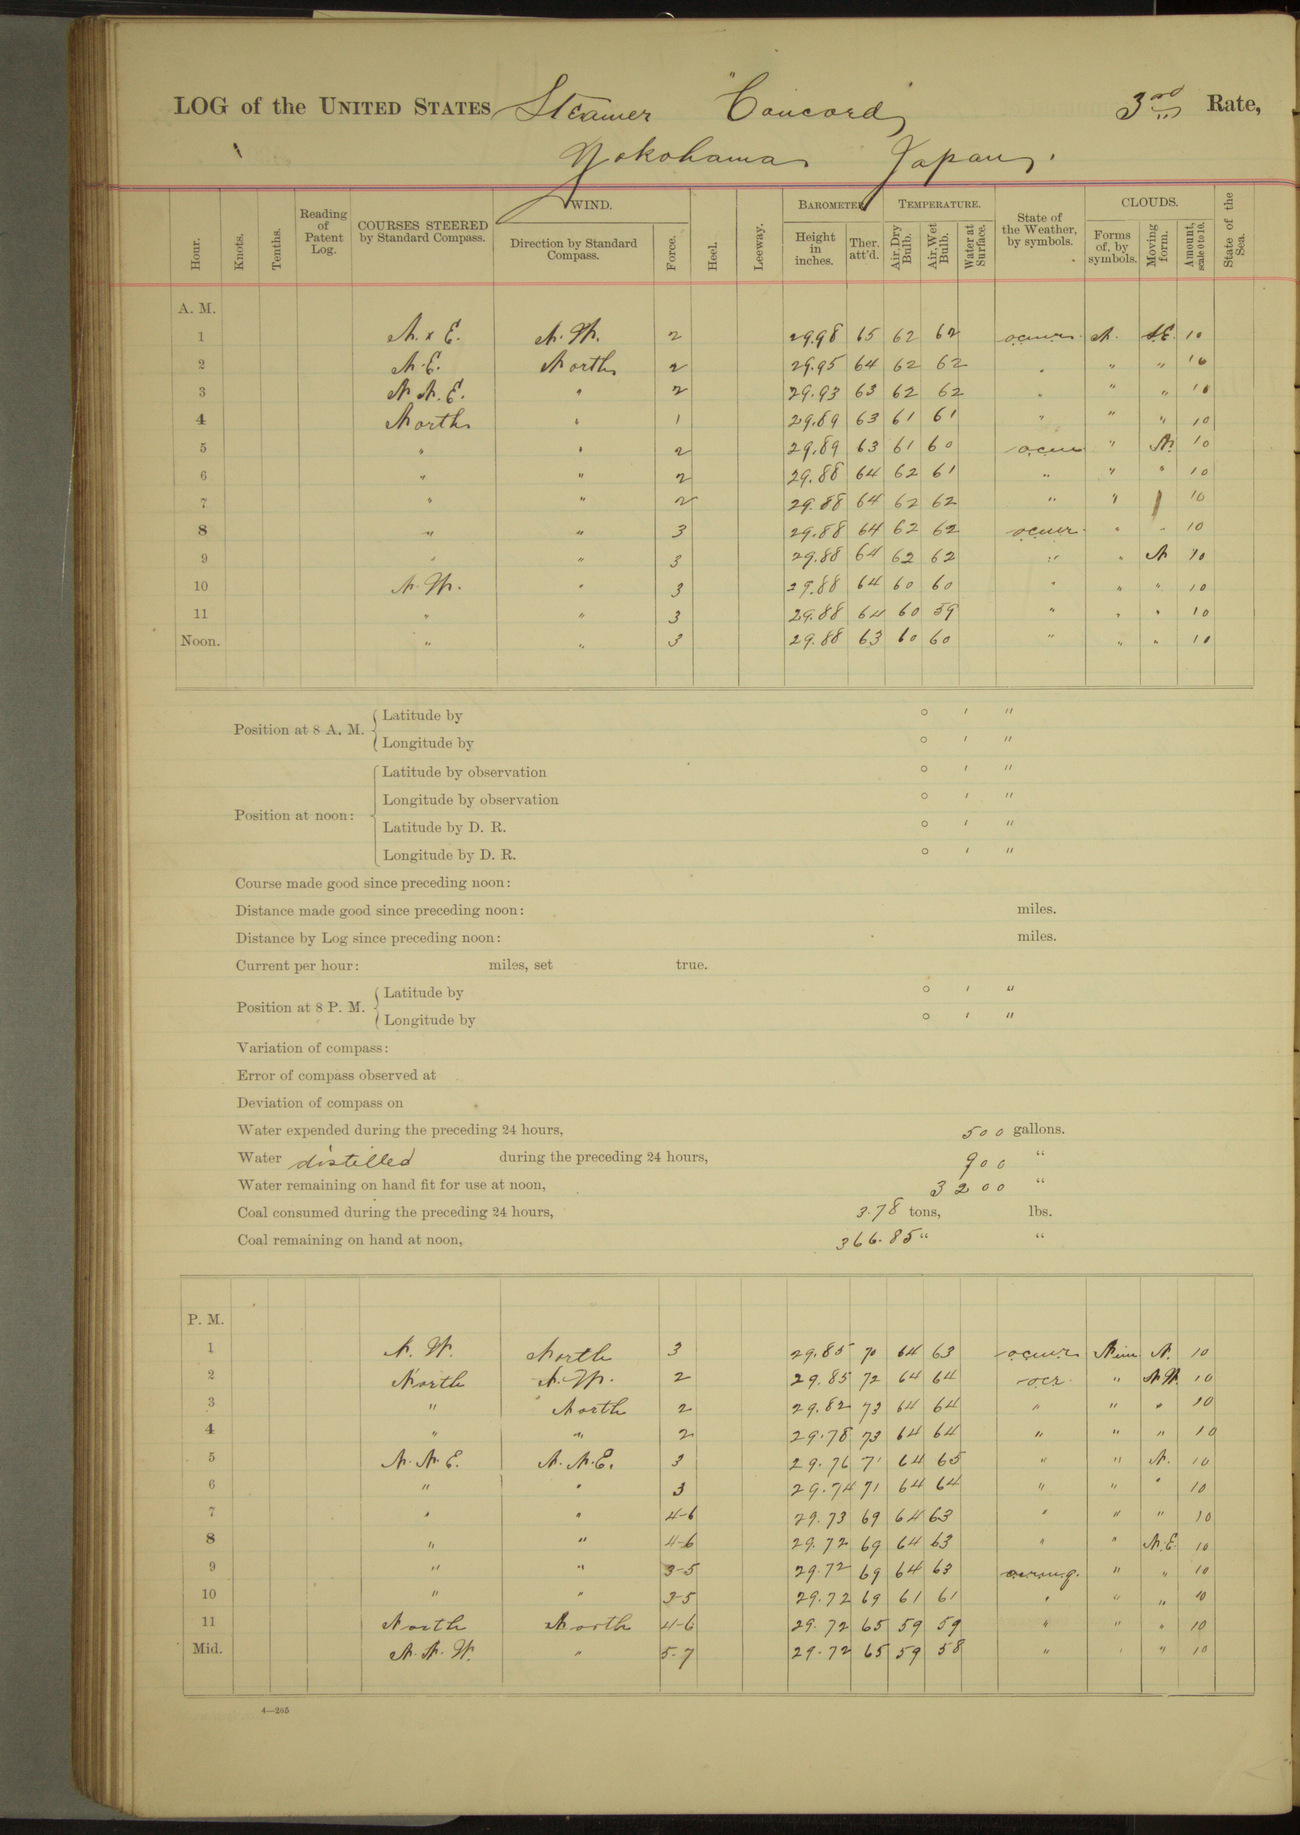 LOG of the UNITED STATES Steamer "Concord, 3rd Rate,
Yokohama Japan.
Hour. Knots. Tenths. Reading of Patent Log. COURSES STEERED by Standard Compass. WIND. Direction by Standard Compass. Force. Heel. Leeway. BAROMETER. Height in inches. Ther. att'd. TEMPERATURE. Air, Dry Bulb. Air, Wet Bulb. Water at Surface. State of the Weather, by symbols. CLOUDS. Forms of, by symbols. Moving form. Amount, scale 0 to 10. State of the Sea.
A. M.
1 N. x E. N. W. 2 29.98 65 62 62 N. S.E. 10
2 N. E. North 2 29.95 64 62 62 " " " 10
3 N. N. E. " 2 29.93 63 62 62 " " " 10
4 North " 1 29.89 63 61 61 " " " 10
5 " " 2 29.89 63 61 60 " N. 10
6 " " 2 29.88 64 62 61 " " " 10
7 " " 2 29.88 64 62 62 " " 10
8 " " 3 29.88 64 62 62 " " 10
9 " " 3 29.88 64 62 62 " " N 10
10 N. W. " 3 29.88 64 60 60 " " " 10
11 " " 3 29.88 64 60 59 " " " 10
Noon. " " 3 29.88 63 60 60 " " " 10
Position at 8 A. M. Latitude by ° ′ ″
Longitude by ° ′ ″
Latitude by observation ° ′ ″
Longitude by observation ° ′ ″
Position at noon:
Latitude by D. R. ° ′ ″
Longitude by D. R. ° ′ ″
Course made good since preceding noon:
Distance made good since preceding noon: miles.
Distance by Log since preceding noon: miles.
Current per hour: miles, set true.
Position at 8 P. M. Latitude by ° ′ ″
Longitude by ° ′ ″
Variation of compass:
Error of compass observed at
Deviation of compass on
Water expended during the preceding 24 hours, 500 gallons.
Water distilled during the preceding 24 hours, 900 "
Water remaining on hand fit for use at noon, 3200 "
Coal consumed during the preceding 24 hours, 3.78 tons, lbs.
Coal remaining on hand at noon, 366.85 " "
P. M.
1 N. W. North 3 29.85 70 64 63 Nim N. 10
2 North N. W. 2 29.85 72 64 64 ocr. " N.W. 10
3 " North 2 29.82 73 64 64 " " " 10
4 " " 2 29.78 73 64 64 " " " 10
5 N. N. E. N. N. E. 3 29.76 71 64 65 " " N. 10
6 " " 3 29.74 71 64 64 " " " 10
7 " " 4-6 29.73 69 64 63 " " " 10
8 " " 4-6 29.72 69 64 63 " " N.E. 10
9 " " 3-5 29.72 69 64 63 " " 10
10 " " 3-5 29.72 69 61 61 " " " 10
11 North North 4-6 29.72 65 59 59 " " " 10
Mid. N. N. W. " 5-7 29.72 65 59 58 " " " 10
4—265